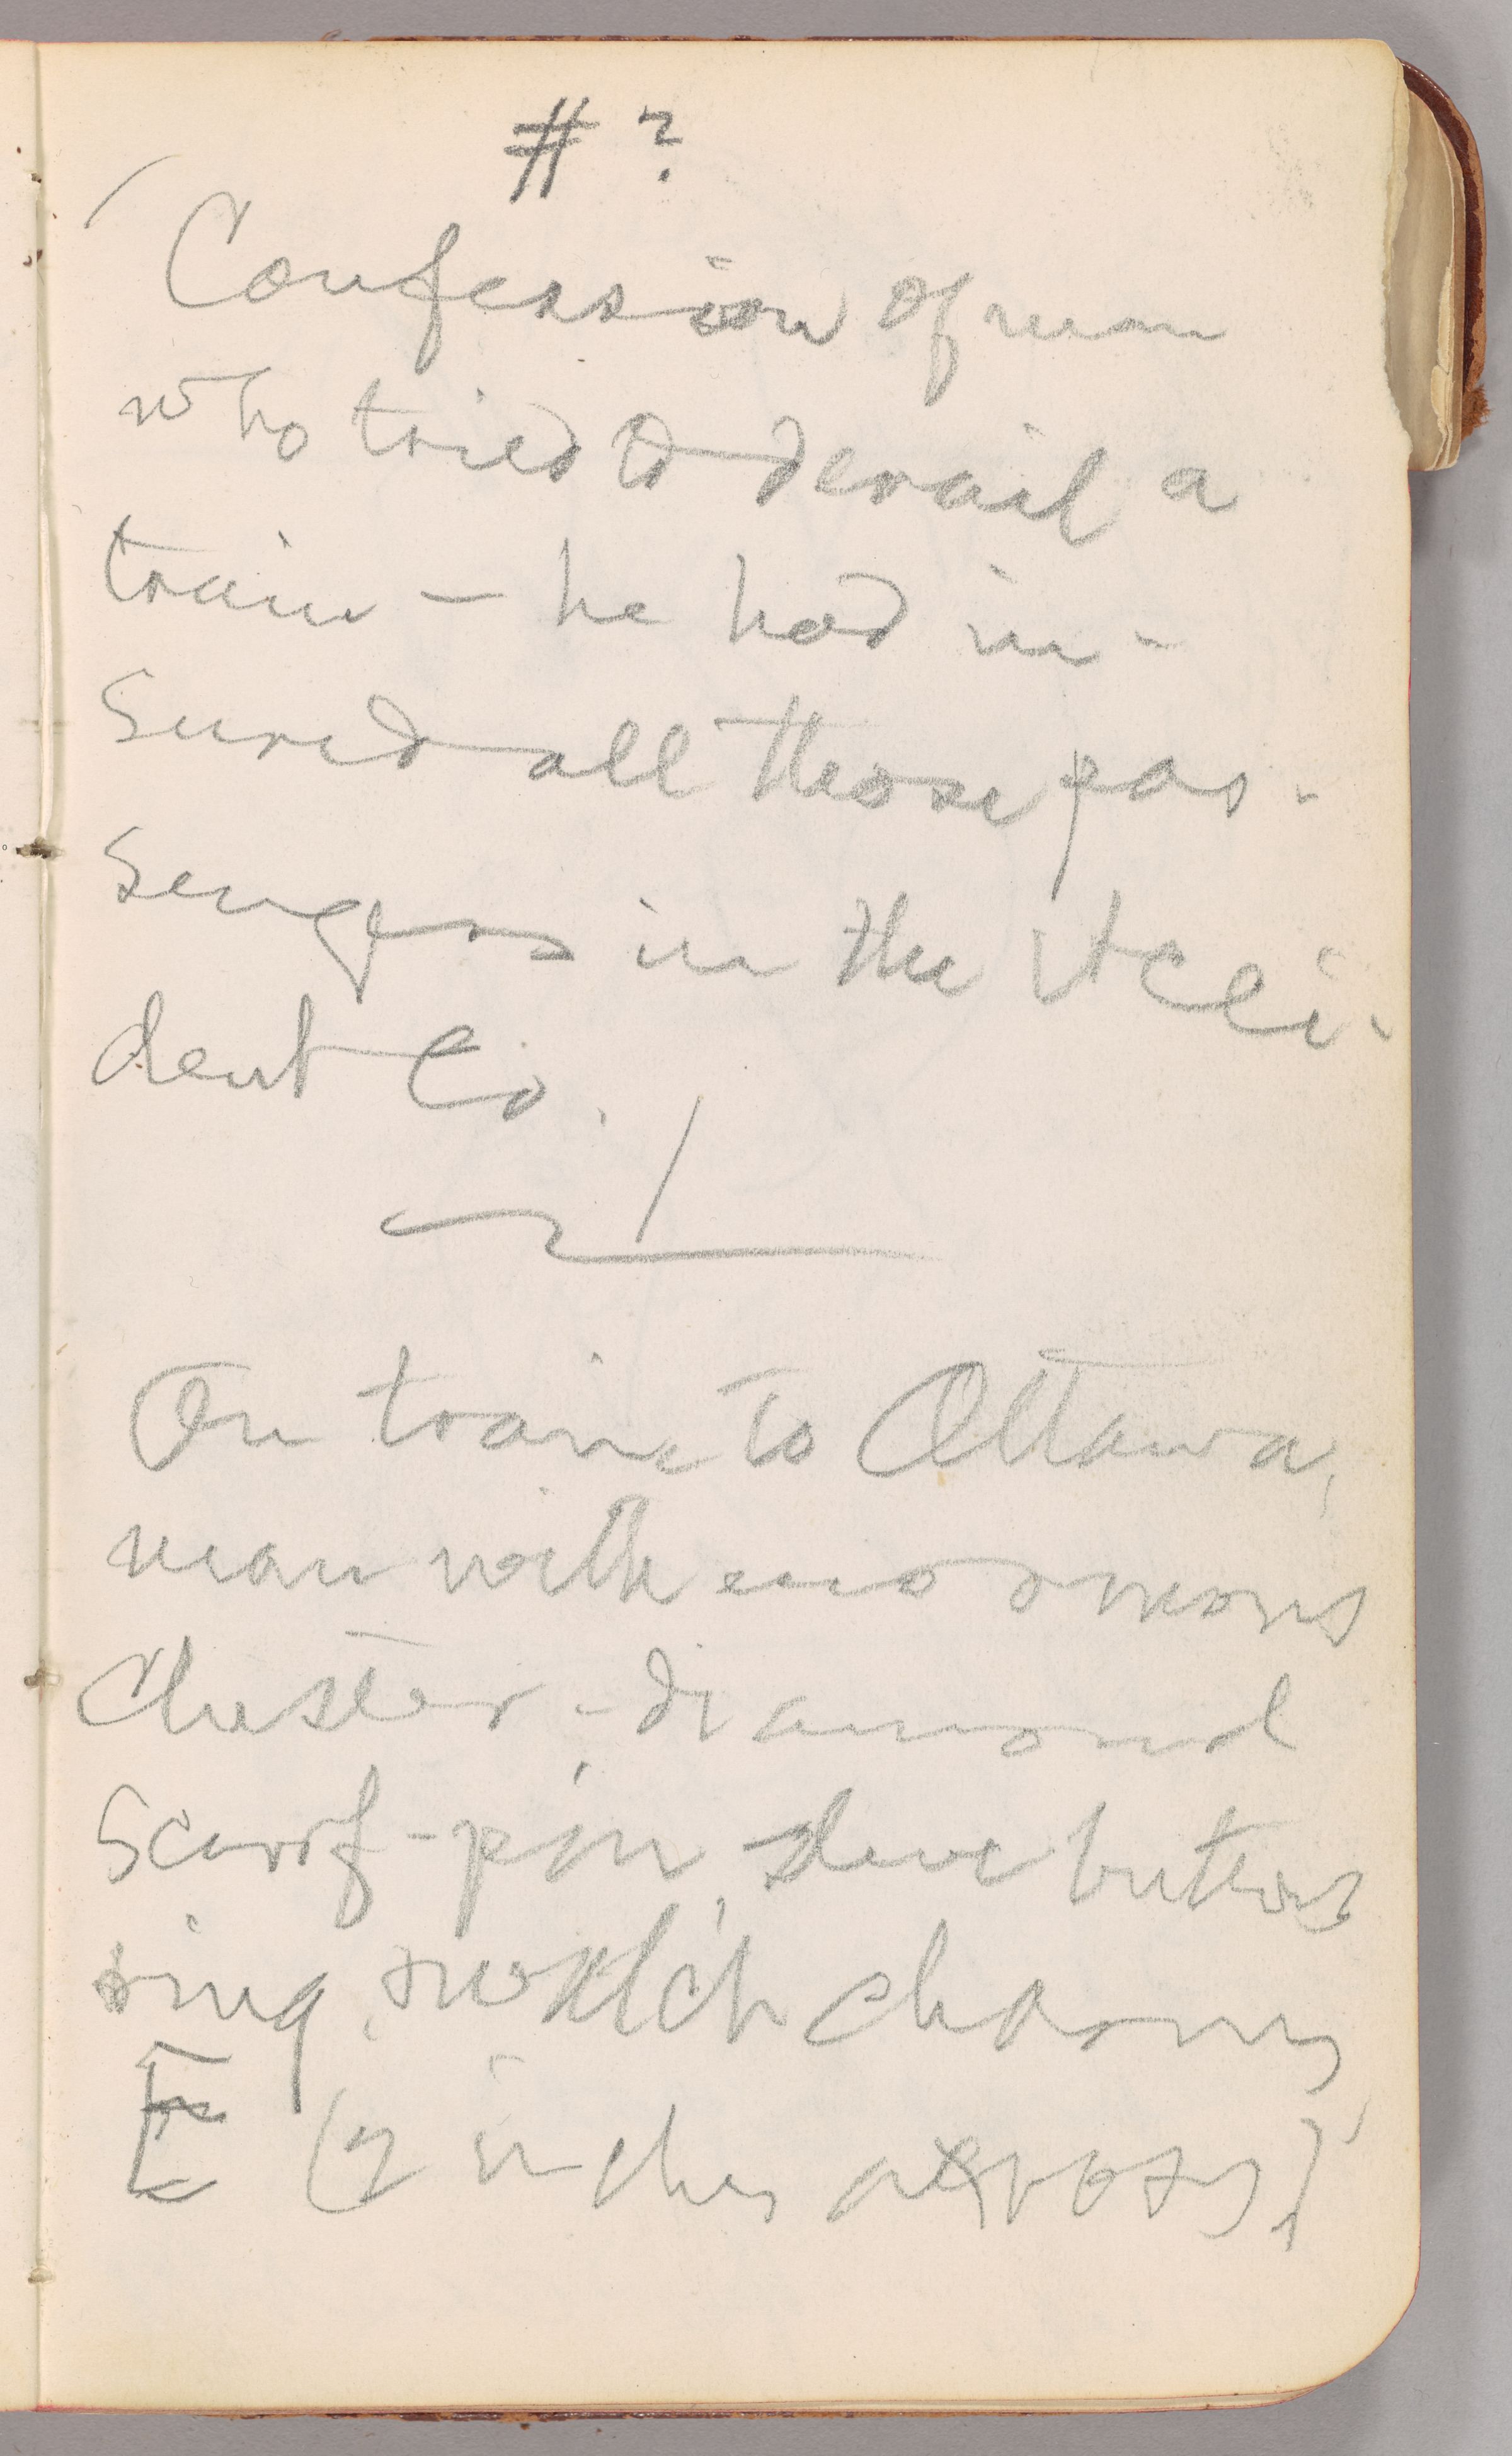 # ?
Confession of man
who tried to derail a
train — he had in-
sured all those pas-
sengers in the Acci-
dent Co.
On train to Ottawa,
man with enormous
cluster-diamond
scarf-pin, sleeve buttons
ring, watch charm,
(2 inches across)